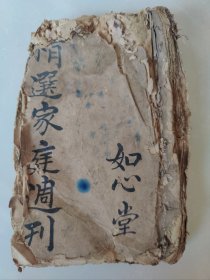 精選家庭週刊
如心堂